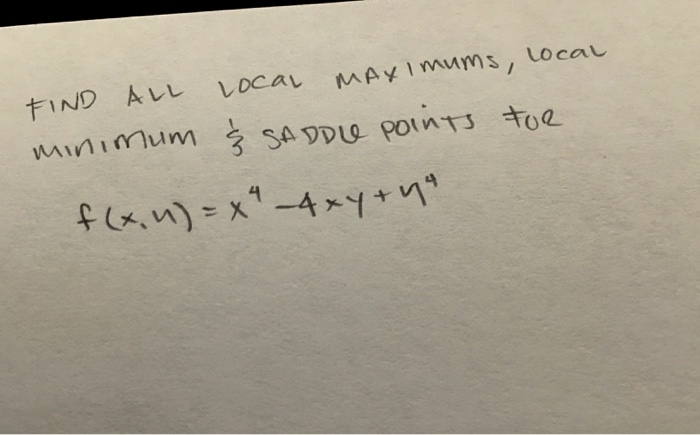 FIND ALL LOCAL MAXIMUMS, LOCAL
MINIMUM & SADDLE POINTS FOR
f(x,y) = x⁴ - 4xy + y⁴